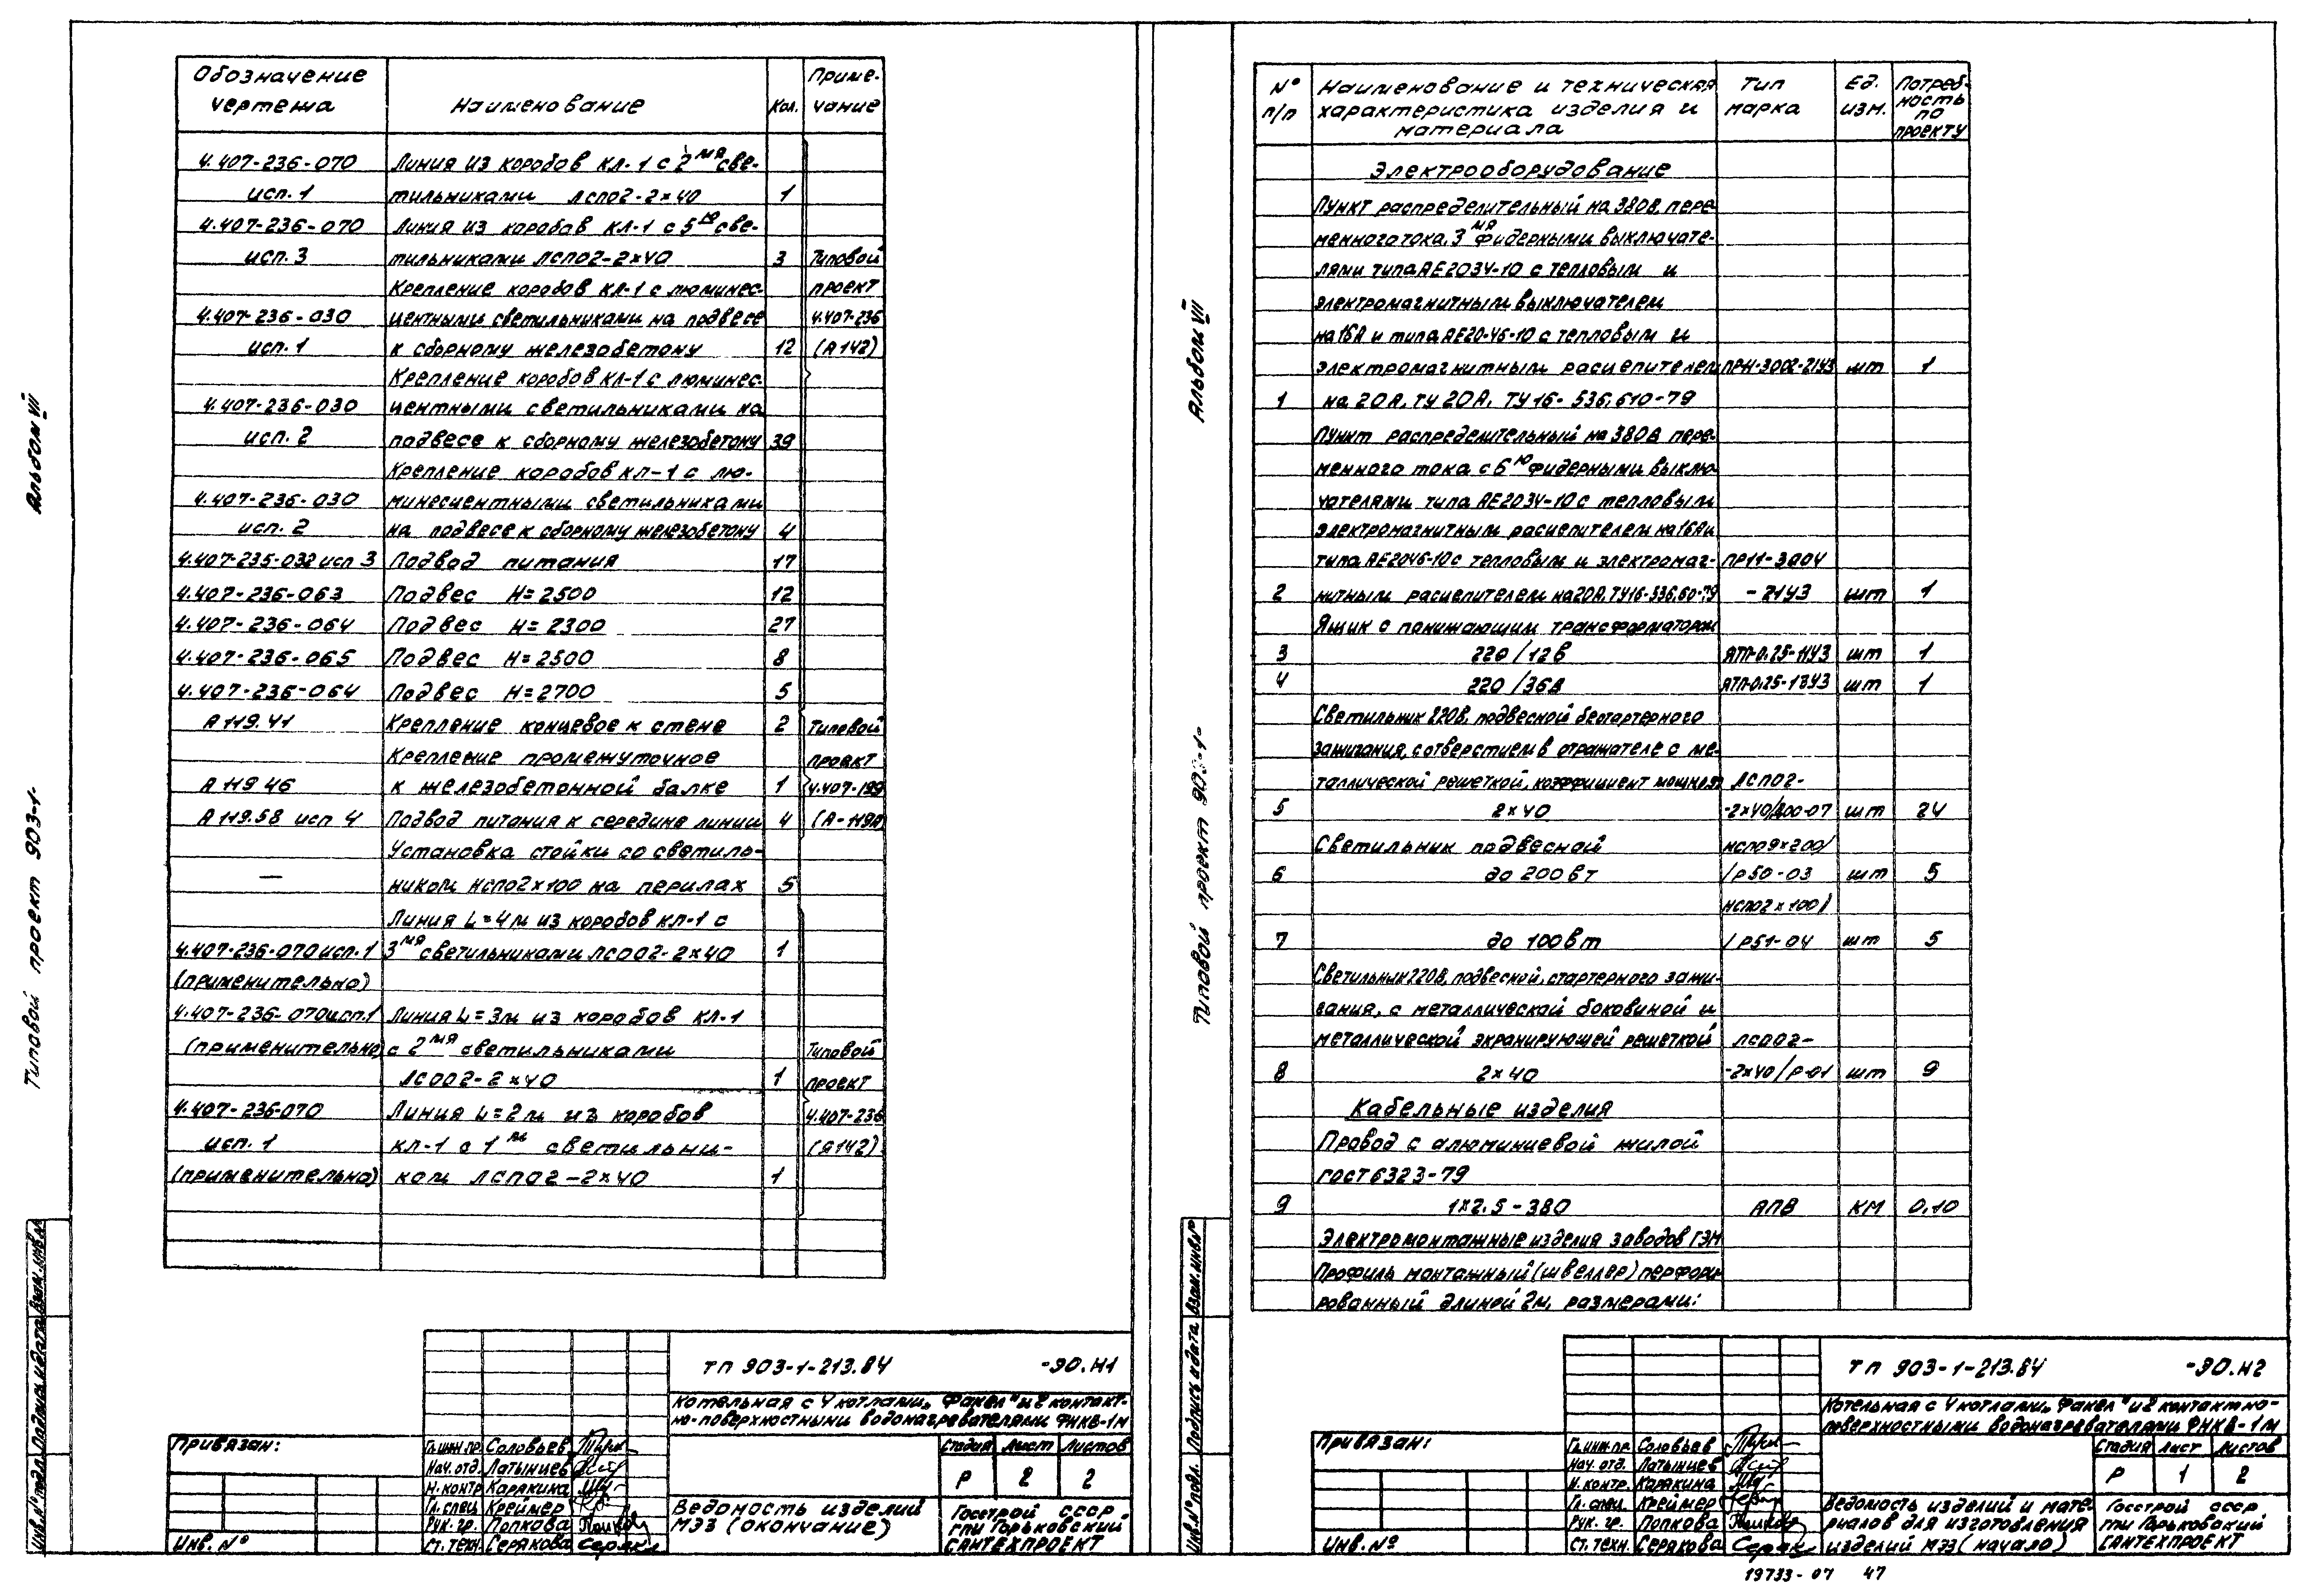 Альбом VII
Типовой проект 903-1-
Обозначение чертежа | Наименование | Кол. | Приме-чание
4.407-236-070 | Линия из коробов КЛ-1 с 2мя све-
исп. 1 | тильниками ЛСП02-2×40 | 1
4.407-236-070 | Линия из коробов КЛ-1 с 5ю све-
исп. 3 | тильниками ЛСП02-2×40 | 3 | Типовой
Крепление коробов КЛ-1 с люминес- | проект
4.407-236-030 | центными светильниками на подвесе | 4.407-236
исп. 1 | к сборному железобетону | 12 | (А142)
Крепление коробов КЛ-1 с люминес-
4.407-236-030 | центными светильниками на
исп. 2 | подвесе к сборному железобетону | 39
Крепление коробов КЛ-1 с лю-
4.407-236-030 | минесцентными светильниками
исп. 2 | на подвесе к сборному железобетону | 4
4.407-235-032 исп 3 | Подвод питания | 17
4.407-236-063 | Подвес Н=2500 | 12
4.407-236-064 | Подвес Н=2300 | 27
4.407-236-065 | Подвес Н=2500 | 8
4.407-236-064 | Подвес Н=2700 | 5
А119.41 | Крепление концевое к стене | 2 | Типовой
Крепление промежуточное | проект
А119 46 | к железобетонной балке | 1 | 4.407-199
А119.58 исп 4 | Подвод питания к середине линии | 4 | (А-119А)
Установка стойки со светиль-
— | ником НСП02×100 на перилах | 5
Линия L=4м из коробов КЛ-1 с
4.407-236-070 исп.1 | 3мя светильниками ЛСП02-2×40 | 1
(применительно)
4.407-236-070 исп.1 | Линия L=3м из коробов КЛ-1
(применительно) | с 2мя светильниками | Типовой
ЛСП02-2×40 | 1 | проект
4.407-236-070 | Линия L=2м из коробов | 4.407-236
исп. 1 | КЛ-1 с 1м светильни- | (А142)
(применительно) | ком ЛСП02-2×40 | 1
ТП 903-1-213.84 -ЭО.Н1
Котельная с 4 котлами „Факел" и 2 контакт-
но-поверхностными водонагревателями ФНКВ-1М
Привязан:
Гл.инж.пр. Соловьев
Нач.отд. Латынцев
Н.контр Карякина
Гл.спец Креймер
Рук. гр. Попкова
Ст. техн. Серякова
Инв. №
Стадия | Лист | Листов
Р | 2 | 2
Ведомость изделий
МЭЗ (окончание)
Госстрой СССР
ГПИ Горьковский
САНТЕХПРОЕКТ
Инв.№ подл. | Подпись и дата | Взам.инв.№
Альбом VII
Типовой проект 903-1-
№ п/п | Наименование и техническая характеристика изделия и материала | Тип марка | Ед. изм. | Потреб-ность по проекту
Электрооборудование
Пункт распределительный на 380В, пере-
менного тока, 3мя фидерными выключате-
лями типа АЕ2034-10 с тепловым и
электромагнитным выключателем
на 16А и типа АЕ20-46-10 с тепловым и
электромагнитным расцепителем | ПР11-3002-21У3 | шт | 1
1 | на 20А, ТУ 20А. ТУ16-536.610-79
Пункт распределительный на 380В пере-
менного тока с 6ю фидерными выклю-
чателями типа АЕ2034-10 с тепловым
электромагнитным расцепителем на 16А и
типа АЕ2046-10 с тепловым и электромаг- | ПР11-3004
2 | нитным расцепителем на 20А, ТУ16-536.60-79 | -21У3 | шт | 1
Ящик с понижающим трансформатором
3 | 220/12В | ЯТП-0,25-11У3 | шт | 1
4 | 220/36В | ЯТП-0,25-13У3 | шт | 1
Светильник 220В, подвесной бесстартерного
зажигания, с отверстием в отражателе с ме-
таллической решеткой, коэффициент мощност | ЛСП02-
5 | 2×40 | -2×40/Д00-07 | шт | 24
Светильник подвесной | НСП09×200/
6 | до 200Вт | /Р50-03 | шт | 5
НСП02×100/
7 | до 100Вт | /Р51-04 | шт | 5
Светильник 220В, подвесной, стартерного зажи-
гания, с металлической боковиной и
металлической экранирующей решеткой | ЛСП02-
8 | 2×40 | -2×40/Р-01 | шт | 9
Кабельные изделия
Провод с алюминиевой жилой
ГОСТ 6323-79
9 | 1×2.5-380 | АПВ | КМ | 0.10
Электромонтажные изделия заводов ГЭМ
Профиль монтажный (швеллер) перфори
рованный длиной 2м, размерами:
ТП 903-1-213.84 -ЭО.Н2
Котельная с 4 котлами „Факел" и 2 контактно-
поверхностными водонагревателями ФНКВ-1М
Привязан:
Гл.инж.пр. Соловьев
Нач. отд. Латынцев
Н.контр. Карякина
Гл.спец. Креймер
Рук. гр. Попкова
Ст. техн. Серякова
Инв. №
Стадия | Лист | Листов
Р | 1 | 2
Ведомость изделий и мате-
риалов для изготовления
изделий МЭЗ (начало)
Госстрой СССР
ГПИ Горьковский
САНТЕХПРОЕКТ
Инв.№ подл. | Подпись и дата | Взам.инв.№
19733-07 47